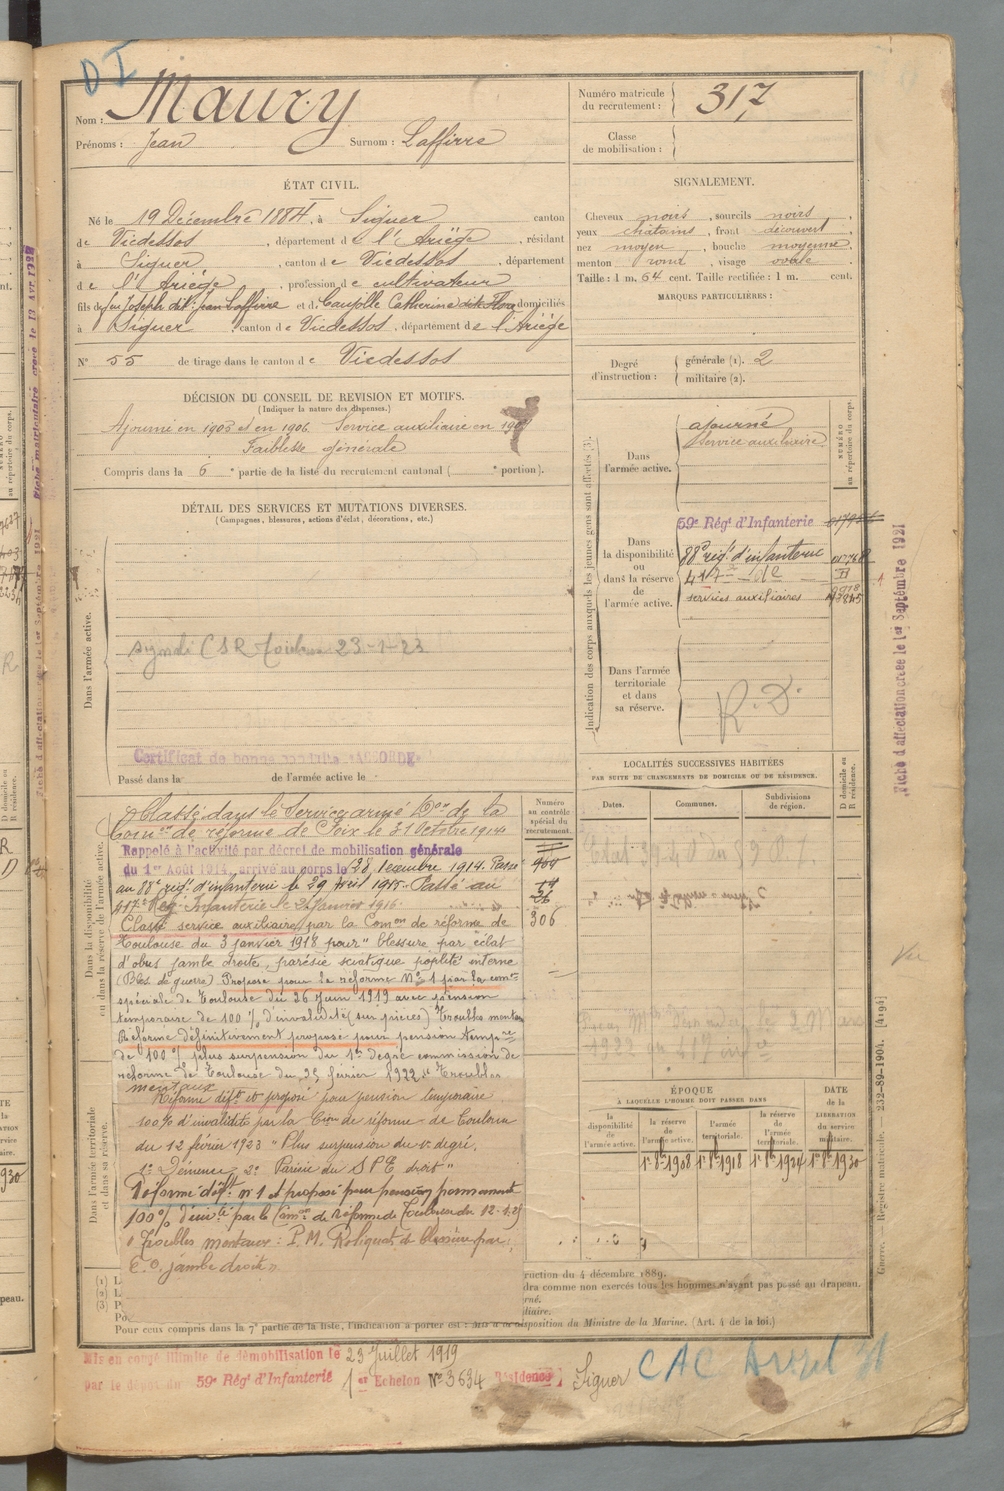 D I
Nom : Maury
Prénoms : Jean Surnom : Laffirre
Numéro matricule du recrutement : 317
Classe de mobilisation :
ÉTAT CIVIL.
Né le 19 Décembre 1884, à Siguer canton
de Vicdessos, département de l'Ariège, résidant
à Siguer, canton de Vicdessos, département
de l'Ariége, profession de cultivateur
fils de feu Joseph dit Jean Laffirre et de Caujolle Catherine dite Flore domiciliés
à Siguer, canton de Vicdessos, département de l'Ariége
N° 55 de tirage dans le canton de Vicdessos
SIGNALEMENT.
Cheveux noirs, sourcils noirs,
yeux chatains, front découvert,
nez moyen, bouche moyenne,
menton rond, visage ovale.
Taille : 1 m. 64 cent. Taille rectifiée : 1 m. cent.
MARQUES PARTICULIÈRES :
Degré d'instruction : générale (1). 2
militaire (2).
DÉCISION DU CONSEIL DE REVISION ET MOTIFS.
(Indiquer la nature des dispenses.)
Ajourné en 1905 et en 1906 Service auxiliaire en
Faiblesse générale
Compris dans la 6e partie de la liste du recrutement cantonal ( e portion).
DÉTAIL DES SERVICES ET MUTATIONS DIVERSES.
(Campagnes, blessures, actions d'éclat, décorations, etc.)
Dans l'armée active.
23-1-23
Certificat de bonne conduite "ACCORDÉ"
Passé dans la de l'armée active le
Indication des corps auxquels les jeunes gens sont affectés (3).
NUMÉRO au répertoire du corps.
Dans l'armée active.
ajourné
service auxiliaire
Dans la disponibilité ou dans la réserve de l'armée active.
59e Régt d'Infanterie
88e régt d'infanterie
417e — de —
services auxiliaires
Dans l'armée territoriale et dans sa réserve.
R.D.
LOCALITÉS SUCCESSIVES HABITÉES
PAR SUITE DE CHANGEMENTS DE DOMICILE OU DE RÉSIDENCE.
Dates. Communes. Subdivisions de région. D domicile ou R résidence.
Dans la disponibilité ou dans la réserve de l'armée active.
Numéro au contrôle spécial du recrutement.
306
Classé dans le Service armé Don de la
Comon de réforme de Foix le 31 Octobre 1914
Rappelé à l'activité par décret de mobilisation générale
du 1er Août 1914, arrivé au corps le 28 Décembre 1914. Passé
au 88e régt d'infanterie le 29 Avril 1915. Passé au
417e Reg. Infanterie le 21 Janvier 1916.
Classé service auxiliaire par la Comon de réforme de
Toulouse du 3 janvier 1918 pour "blessure par éclat
d'obus jambe droite, parésie sciatique poplité interne
(Bles. de guerre) Proposé pour la réforme N° 1 par la comon
spéciale de Toulouse du 26 Juin 1919 avec pension
temporaire de 100 % d'invalidité (sur pièces) Troubles mentaux
Réformé définitivement proposé pour pension tempre
de 100 % plus surpension du 1er degré commission de
réforme de Toulouse du 25 février 1922 "Troubles
mentaux
Réformé déft et proposé pour pension temporaire
100% d'invalidité par la Con de réforme de Toulouse
du 12 février 1923 "Plus surpension du degré,
1° Démence 2° Parésie du S P E droit"
Réformé déft n° 1 et proposé pour pension permanente
100% d'invté par la Comon de Réforme de Toulouse du 12-1-25
"Troubles mentaux : P. M. Reliquat de blessure par
E. O. jambe droite"
Dans l'armée territoriale et dans sa réserve.
ÉPOQUE
À LAQUELLE L'HOMME DOIT PASSER DANS
la disponibilité de l'armée active.
la réserve de l'armée active.
l'armée territoriale.
la réserve de l'armée territoriale.
DATE de la LIBÉRATION du service militaire.
1er 8bre 1908 1er 8bre 1918 1er 8bre 1924 1er 8bre 1930
ruction du 4 décembre 1889.
dra comme non exercés tous les hommes n'ayant pas passé au drapeau.
rné.
diaire.
Pour ceux compris dans la 7e partie de la liste, l'indication à porter est : disposition du Ministre de la Marine. (Art. 4 de la loi.)
Mis en congé illimité de démobilisation le 23 Juillet 1919
par le dépôt du 59e Régt d'Infanterie 1er Echelon N° 3634 Résidence Siguer
CAC
Fiche d'affectation créée le 1er Septembre 1921
Guerre. — Registre matricule. — 232-89-1904. [4194]